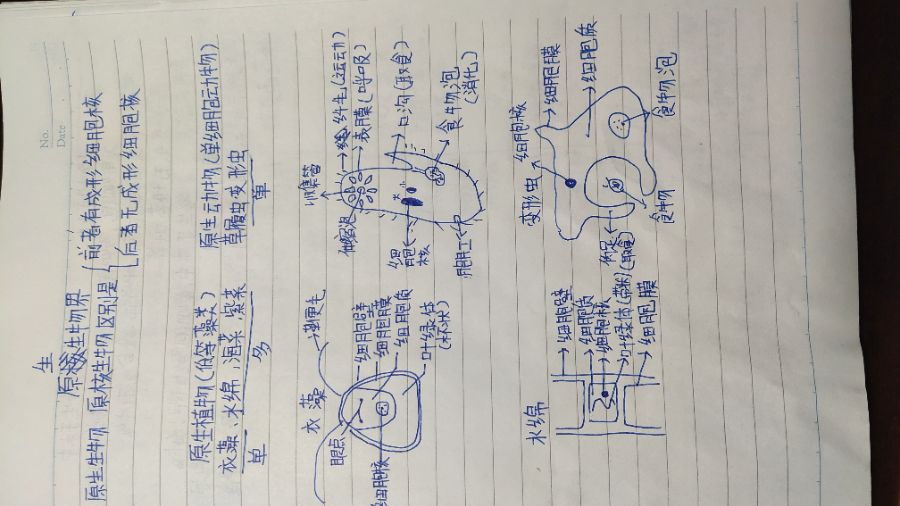 No.
Date
原生生物界
原生生物 原核生物区别是
前者有成形细胞核
后者无成形细胞核
原生植物(低等藻类)
衣藻、水绵、海菜、紫菜
单 多
原生动物(单细胞动物)
草履虫 变形虫
单
衣藻
眼点
鞭毛
细胞壁
细胞膜
细胞质
叶绿体
(杯状)
细胞核
收集管
伸缩泡
纤毛(运动)
表膜(呼吸)
口沟(取食)
食物泡
(消化)
细胞核
胞肛
水绵
细胞壁
细胞质
细胞核
叶绿体(带状)
细胞膜
变形虫
细胞核
细胞膜
细胞质
伪足
(取食)
食物
食物泡